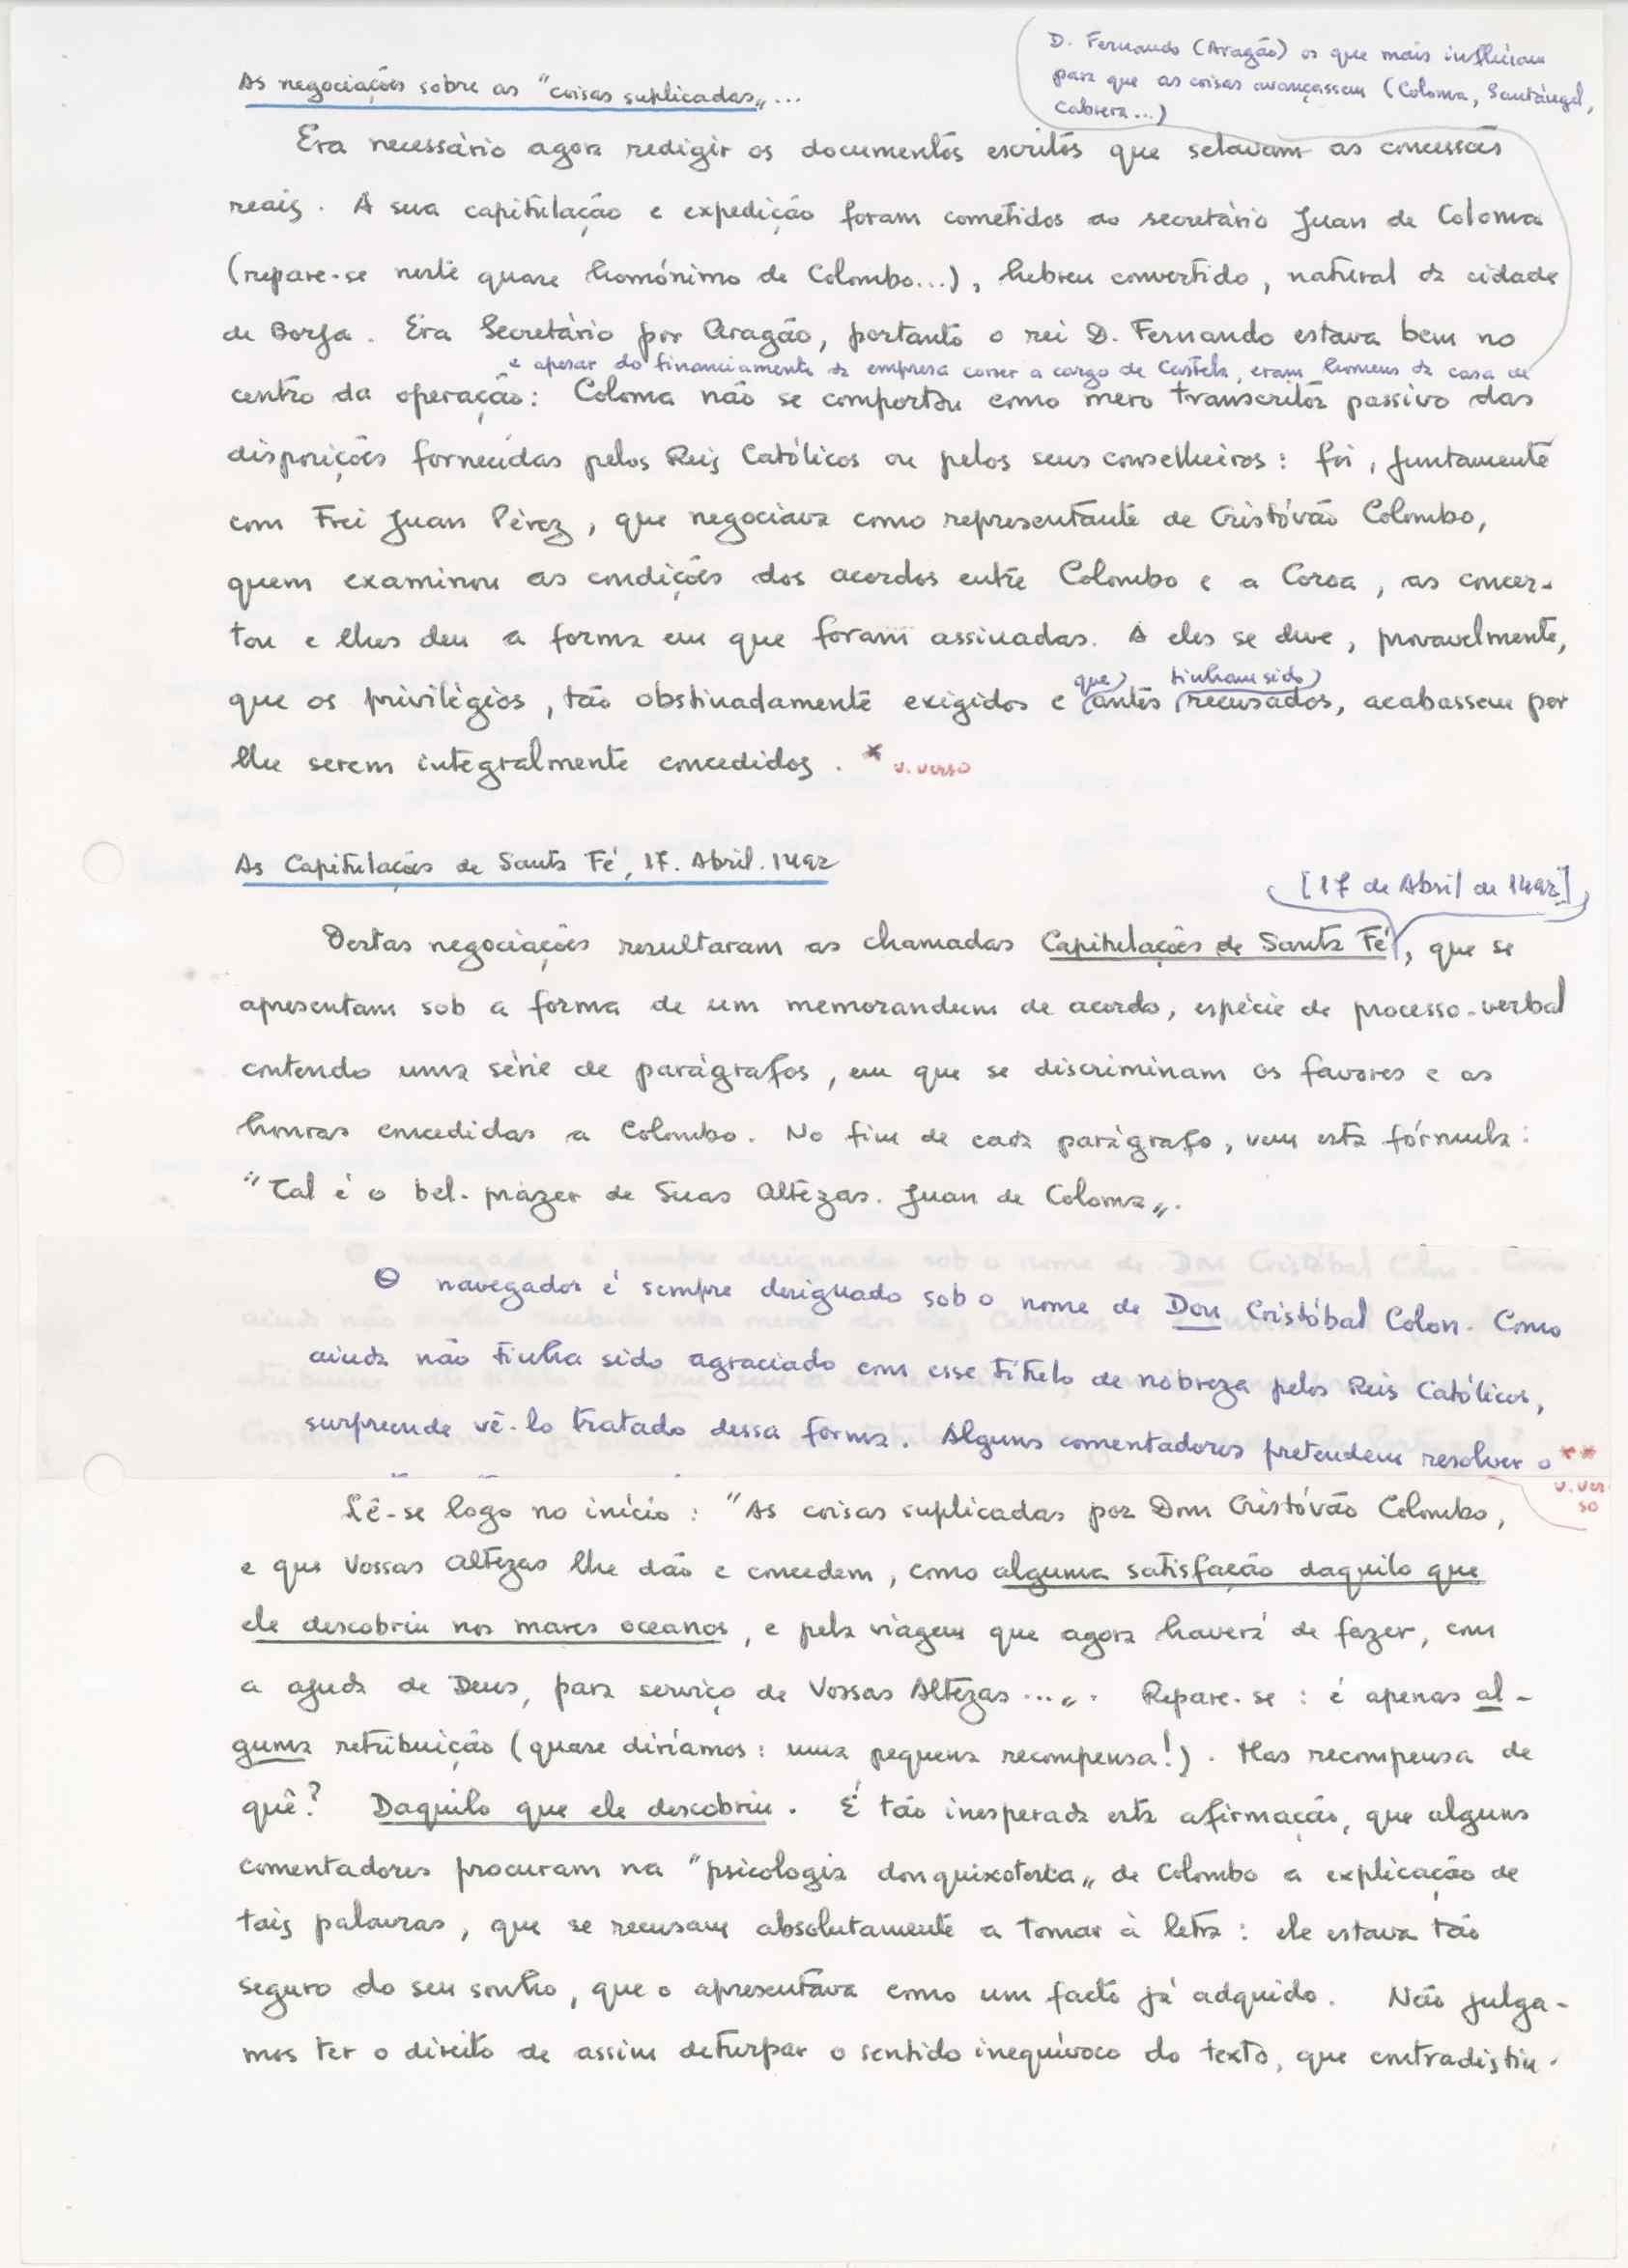 D. Fernando (Aragão) os que mais influíam
para que as coisas avançassem (Coloma, Santángel,
Cabrera...)
As negociações sobre as "coisas suplicadas"...
Era necessário agora redigir os documentos escritos que selavam as concessões
reais. A sua capitulação e expedição foram cometidos ao secretário Juan de Coloma
(repare-se neste quase homónimo de Colombo...), hebreu convertido, natural da cidade
de Borja. Era Secretário por Aragão, portanto o rei D. Fernando estava bem no
e apesar do financiamento da empresa correr a cargo de Castela, eram homens da casa de
centro da operação: Coloma não se comportou como mero transcritor passivo das
disposições fornecidas pelos Reis Católicos ou pelos seus conselheiros: foi, juntamente
com Frei Juan Pérez, que negociava como representante de Cristóvão Colombo,
quem examinou as condições dos acordos entre Colombo e a Coroa, as concer-
tou e lhes deu a forma em que foram assinadas. A eles se deve, provavelmente,
que tinham sido
que os privilégios, tão obstinadamente exigidos e antes recusados, acabassem por
lhe serem integralmente concedidos. * v. verso
As Capitulações de Santa Fé, 17. Abril. 1492
[17 de Abril de 1492]
Destas negociações resultaram as chamadas Capitulações de Santa Fé, que se
apresentam sob a forma de um memorandum de acordo, espécie de processo-verbal
contendo uma série de parágrafos, em que se discriminam os favores e as
honras concedidas a Colombo. No fim de cada parágrafo, vem esta fórmula:
"Tal é o bel-prazer de Suas Altezas. Juan de Coloma".
O navegador é sempre designado sob o nome de Don Cristóbal Colon. Como
ainda não tinha sido agraciado com esse título de nobreza pelos Reis Católicos,
surpreende vê-lo tratado dessa forma. Alguns comentadores pretendem resolver o **
v. ver-
so
Lê-se logo no início: "As coisas suplicadas por Dom Cristóvão Colombo,
e que Vossas Altezas lhe dão e concedem, como alguma satisfação daquilo que
ele descobriu nos mares oceanos, e pela viagem que agora haverá de fazer, com
a ajuda de Deus, para serviço de Vossas Altezas...". Repare-se: é apenas al-
guma retribuição (quase diríamos: uma pequena recompensa!). Mas recompensa de
quê? Daquilo que ele descobriu. É tão inesperada esta afirmação, que alguns
comentadores procuram na "psicologia donquixotesca" de Colombo a explicação de
tais palavras, que se recusam absolutamente a tomar à letra: ele estava tão
seguro do seu sonho, que o apresentava como um facto já adquido. Não julga-
mos ter o direito de assim deturpar o sentido inequívoco do texto, que contradistin-